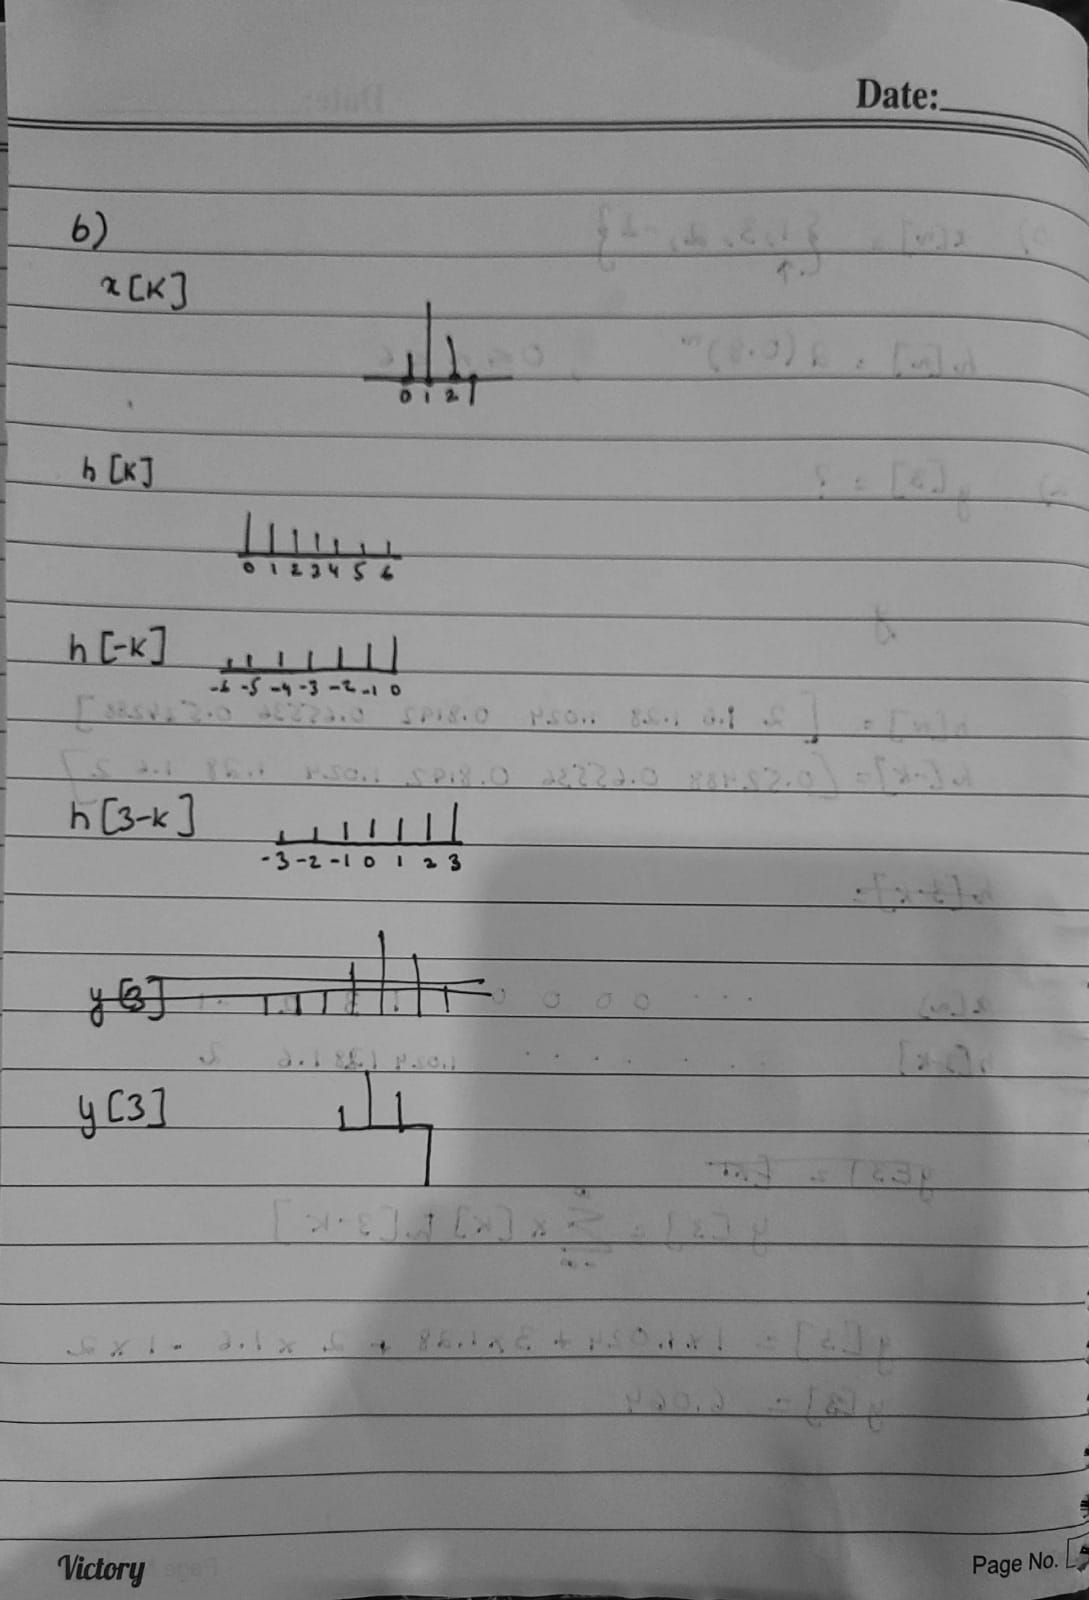 Date:
b)
x[K]
0 1 2
h[K]
0 1 2 3 4 5 6
h[-K]
-6 -5 -4 -3 -2 -1 0
h[3-K]
-3 -2 -1 0 1 2 3
y[3]
y[3]
Victory
Page No.